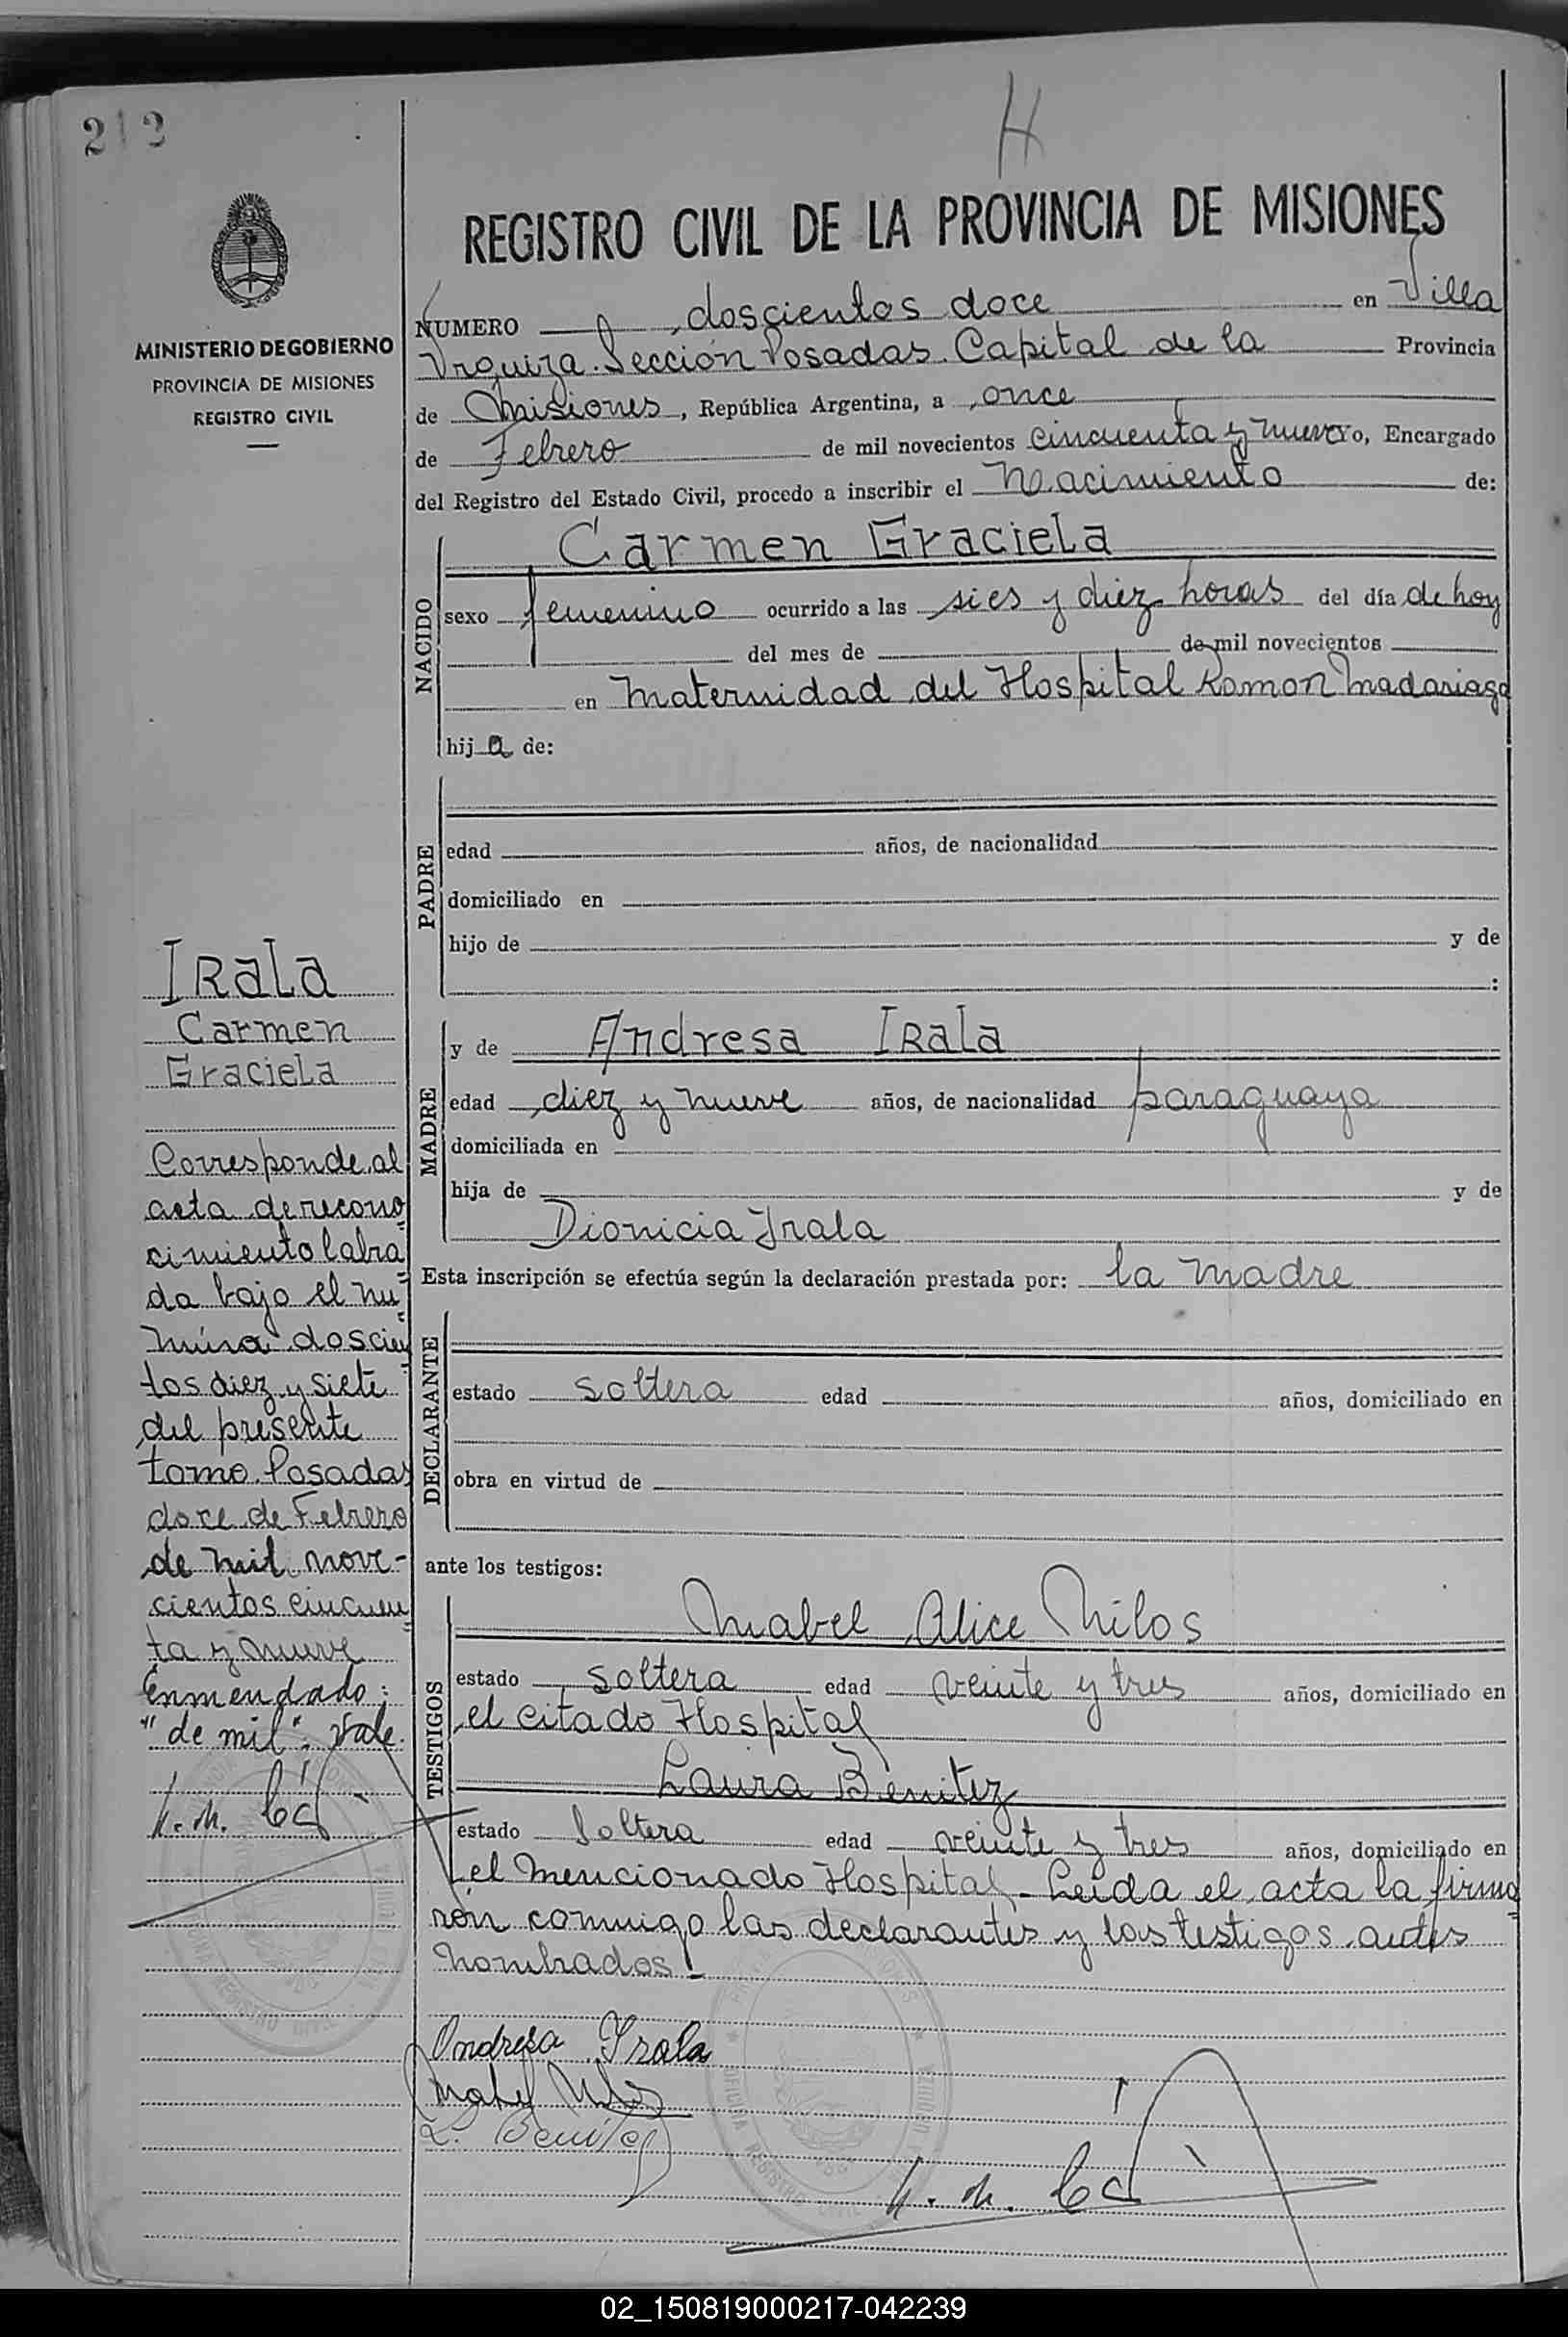 212
H
MINISTERIO DE GOBIERNO
PROVINCIA DE MISIONES
REGISTRO CIVIL
REGISTRO CIVIL DE LA PROVINCIA DE MISIONES
NUMERO doscientos doce en Villa
Urquiza. Sección Posadas. Capital de la Provincia
de Misiones, República Argentina, a once
de Febrero de mil novecientos cincuenta y nueve yo, Encargado
del Registro del Estado Civil, procedo a inscribir el Nacimiento de:
NACIDO
Carmen Graciela
sexo femenino ocurrido a las sies y diez horas del día de hoy
del mes de de mil novecientos
en Maternidad del Hospital Ramon Madariaga
hija de:
PADRE
edad años, de nacionalidad
domiciliado en
hijo de y de
:
MADRE
y de Andresa Irala
edad diez y nueve años, de nacionalidad paraguaya
domiciliada en
hija de y de
Dionicia Irala
Esta inscripción se efectúa según la declaración prestada por: la madre
DECLARANTE
estado soltera edad años, domiciliado en
obra en virtud de
ante los testigos:
TESTIGOS
Mabel Alice Milos
estado soltera edad veinte y tres años, domiciliado en
el citado Hospital
Laura Benitez
estado Soltera edad veinte y tres años, domiciliado en
el mencionado Hospital - Leida el acta la firma=
ron conmigo las declarantes y los testigos antes
nombrados! -
Andresa Irala
Mabel Milos
L. Benitez
Irala
Carmen
Graciela
Corresponde al
acta de recono=
cimiento labra=
da bajo el nu=
mero doscien=
tos diez y siete
del presente
tomo. Posadas
doce de Febrero
de mil nove-
cientos cincuen=
ta y nueve
Enmendado:
"de mil": Vale.
OFICINA REGISTRO CIVIL
02_150819000217-042239